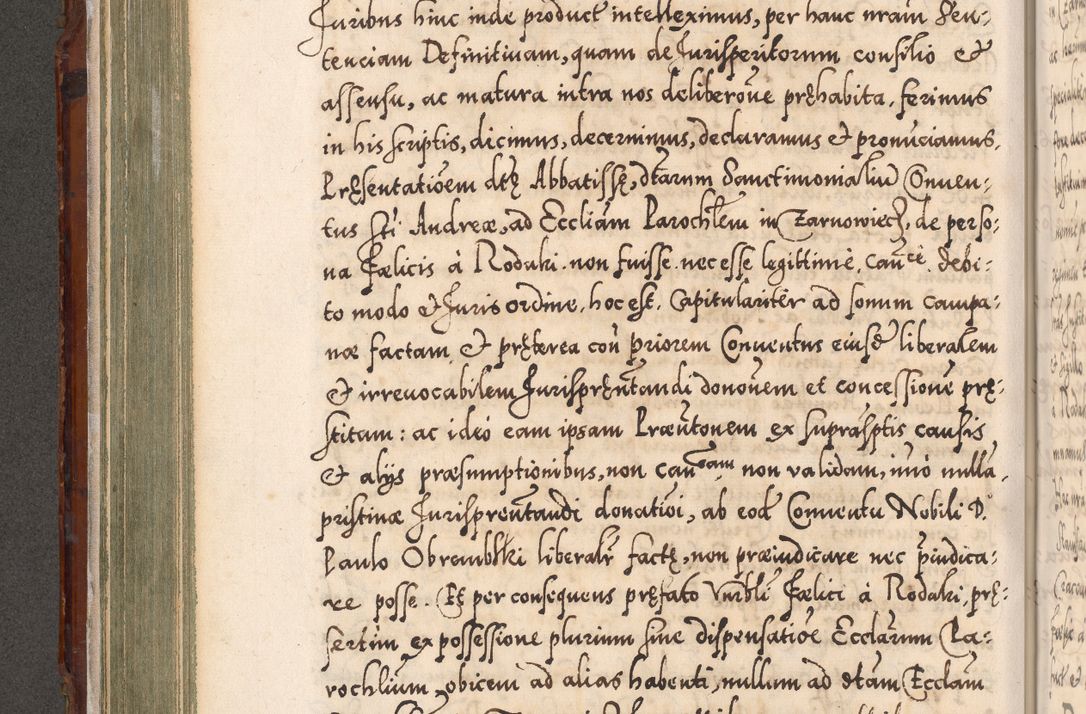 Juribus hinc inde product intelleximus, per hanc nram Sen-
tenciam Definitiuam, quam de Jurisperitorum consilio et
assensu, ac matura intra nos deliberoẽ pręhabita, ferimus
in his scriptis, dicimus, decernimus, declaramus et pronũciamus.
Pręsentatioẽm dtę Abbatissę, dtarum Sanctimonialiũ Conuen-
tus Sti Andreæ, ad Eccliam Parochlem in Czarnowiecz, de perso-
na Fælicis à Rodaki non fuisse necesse legittimè, caucè debi-
to modo et Juris ordine, hoc est, Capitulariter ad sonum campa-
næ factam, et pręterea coñ priorem Conuentus eiusd liberalem
et irreuocabilem Jurisprẽntandi donoẽm et concessionẽ prę-
stitam: ac ideò eam ipsam Præñtonem ex suprasptis causis
et alijs præsumptionibus, non cautam, non validam, imò nulla.
pristinæ Jurisprẽntandi donatioi, ab eod Conuentu Nobili D.
Paulo Obrembski liberalr factę, non præiudicare nec piudica-
re posse. Et per consequens pręfato Vnrbli Fælici à Rodaki, prę-
sertim ex possessione plurium sine dispensatioe Ecclarum Pa-
rochlium obicem ad alias habenti, nullum ad dtam Ecclam